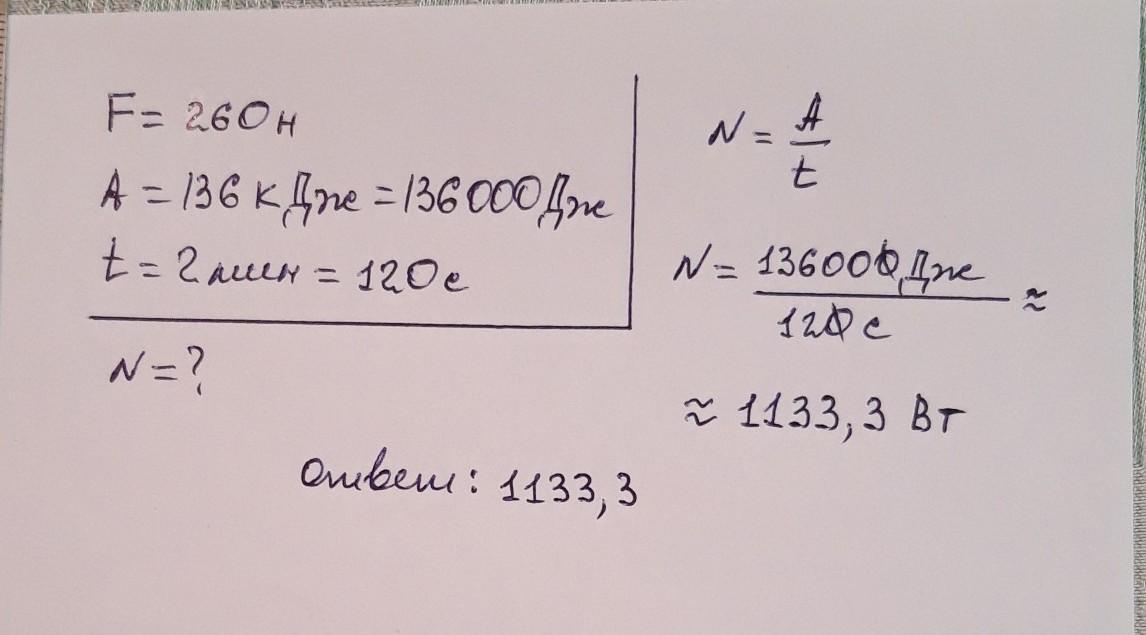 F = 260н
A = 136 кДже = 136000Дже
t = 2 мин = 120с
N = ?
N = A/t
N = 136000 Дже/120 с ≈
≈ 1133,3 Вт
Ответ: 1133,3